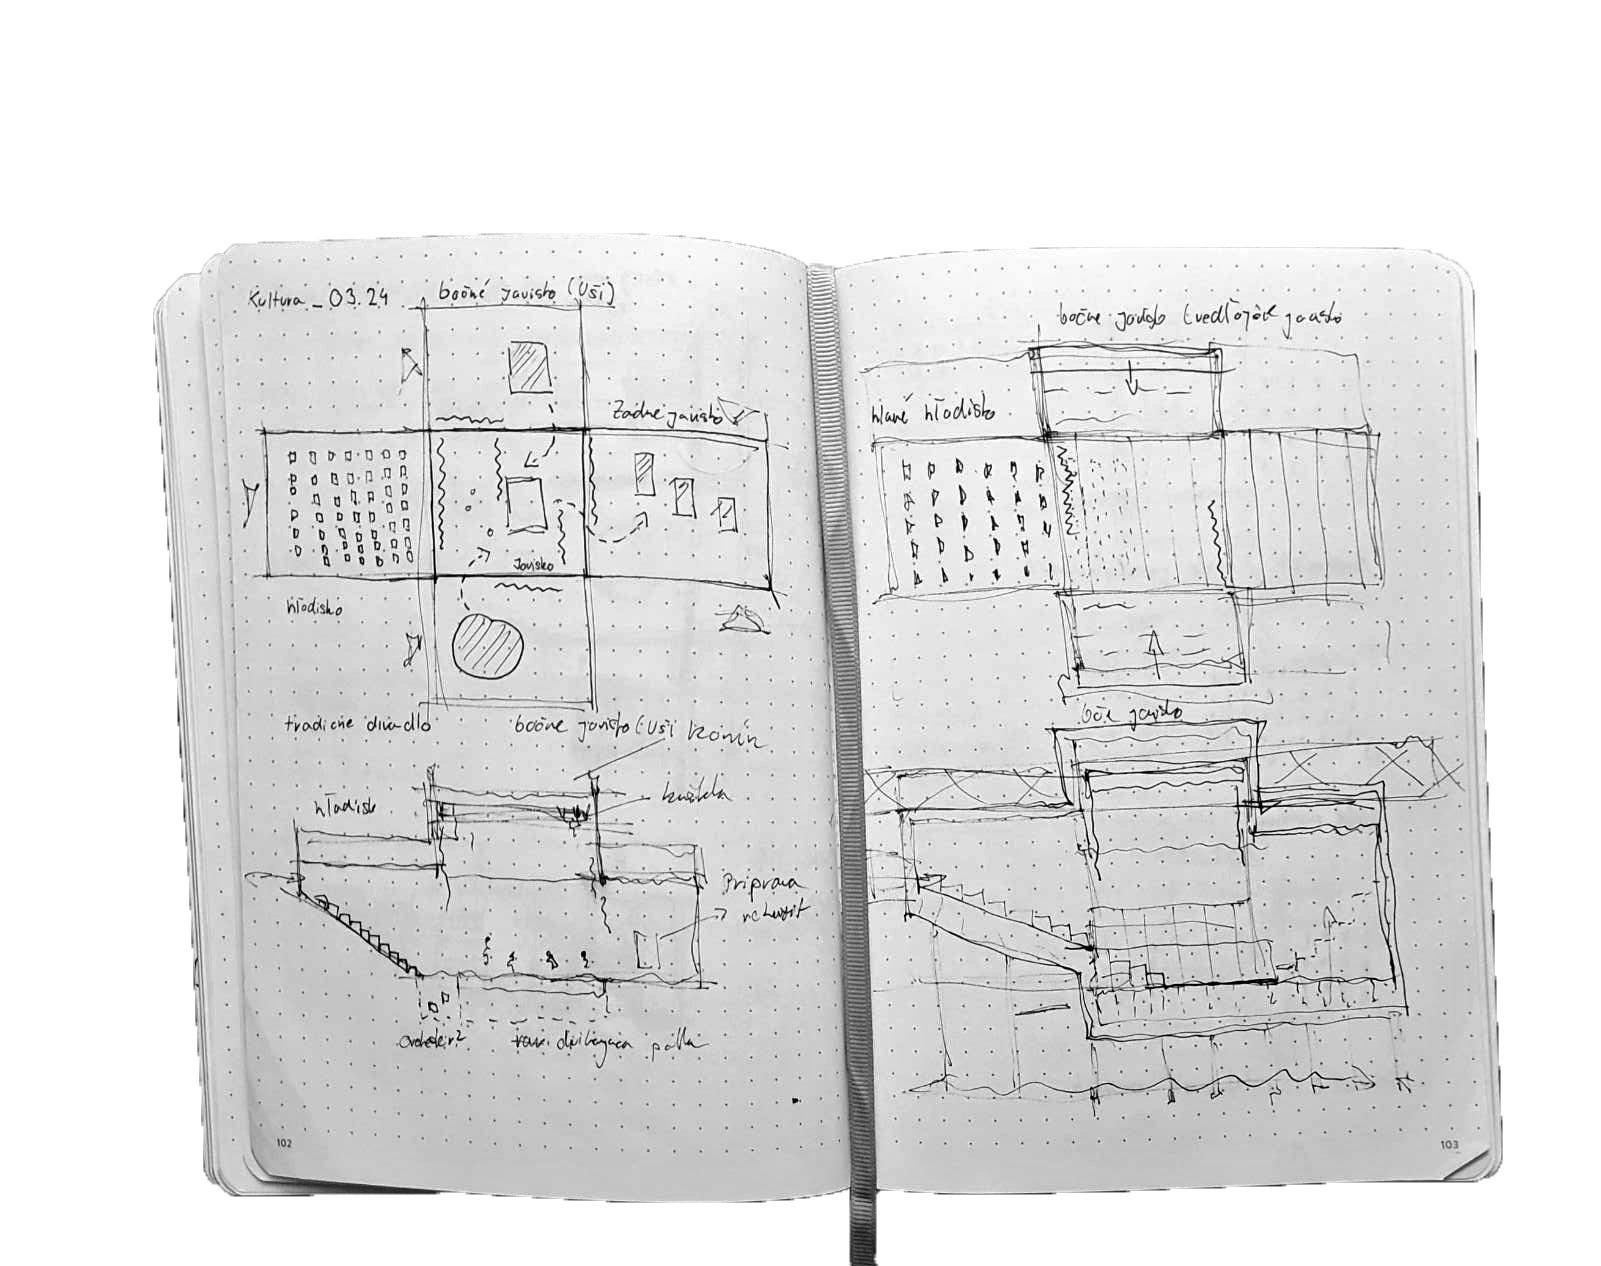 Kultura _ 03.24
bočné javisko (Uši)
Zadné javisko
Javisko
hľadisko
tradičné divadlo
bočné javisko (Uši
komín
hľadisk
kukátka
Príprava
orchester?
pódia
102
bočné javisko (vedľajšie javisko
hlavné hľadisko
bočné javisko
103